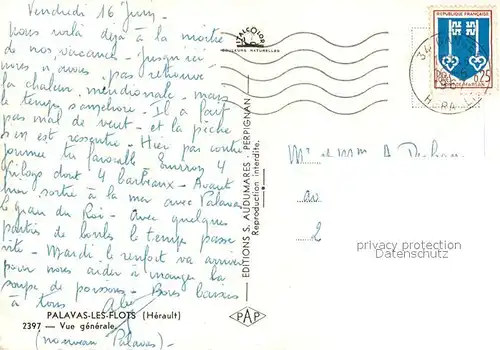 Vendredi 16 Juin -
Nous voilà déjà à la moitié
de nos vacances - Jusqu'ici
nous n'avons pas retrouvé
la chaleur méridionale - mais
le temps s'améliore - Il a fait
pas mal de vent - et la pêche
s'en est ressentie - Hier par contre
journée très favorable Environ 4
kilogs dont 4 barbeaux - Avant
sortie à la mer avec Palavas
le grau du Roi - Avec quelques
parties de boules le temps passe
vite - Mardi le renfort va arriver
pour nous aider à manger la
soupe de poissons - Bons baisers
à tous
PALAVAS-LES-FLOTS (Hérault)
2397 — Vue générale.
(nouveau Palavas) -
EDITIONS S. AUDUMARES - PERPIGNAN
Reproduction interdite.
COULEURS NATURELLES
PAP
REPUBLIQUE FRANÇAISE
0,25
MONT-DE-MARSAN
34
Mr et Mme A.
privacy protection
Datenschutz